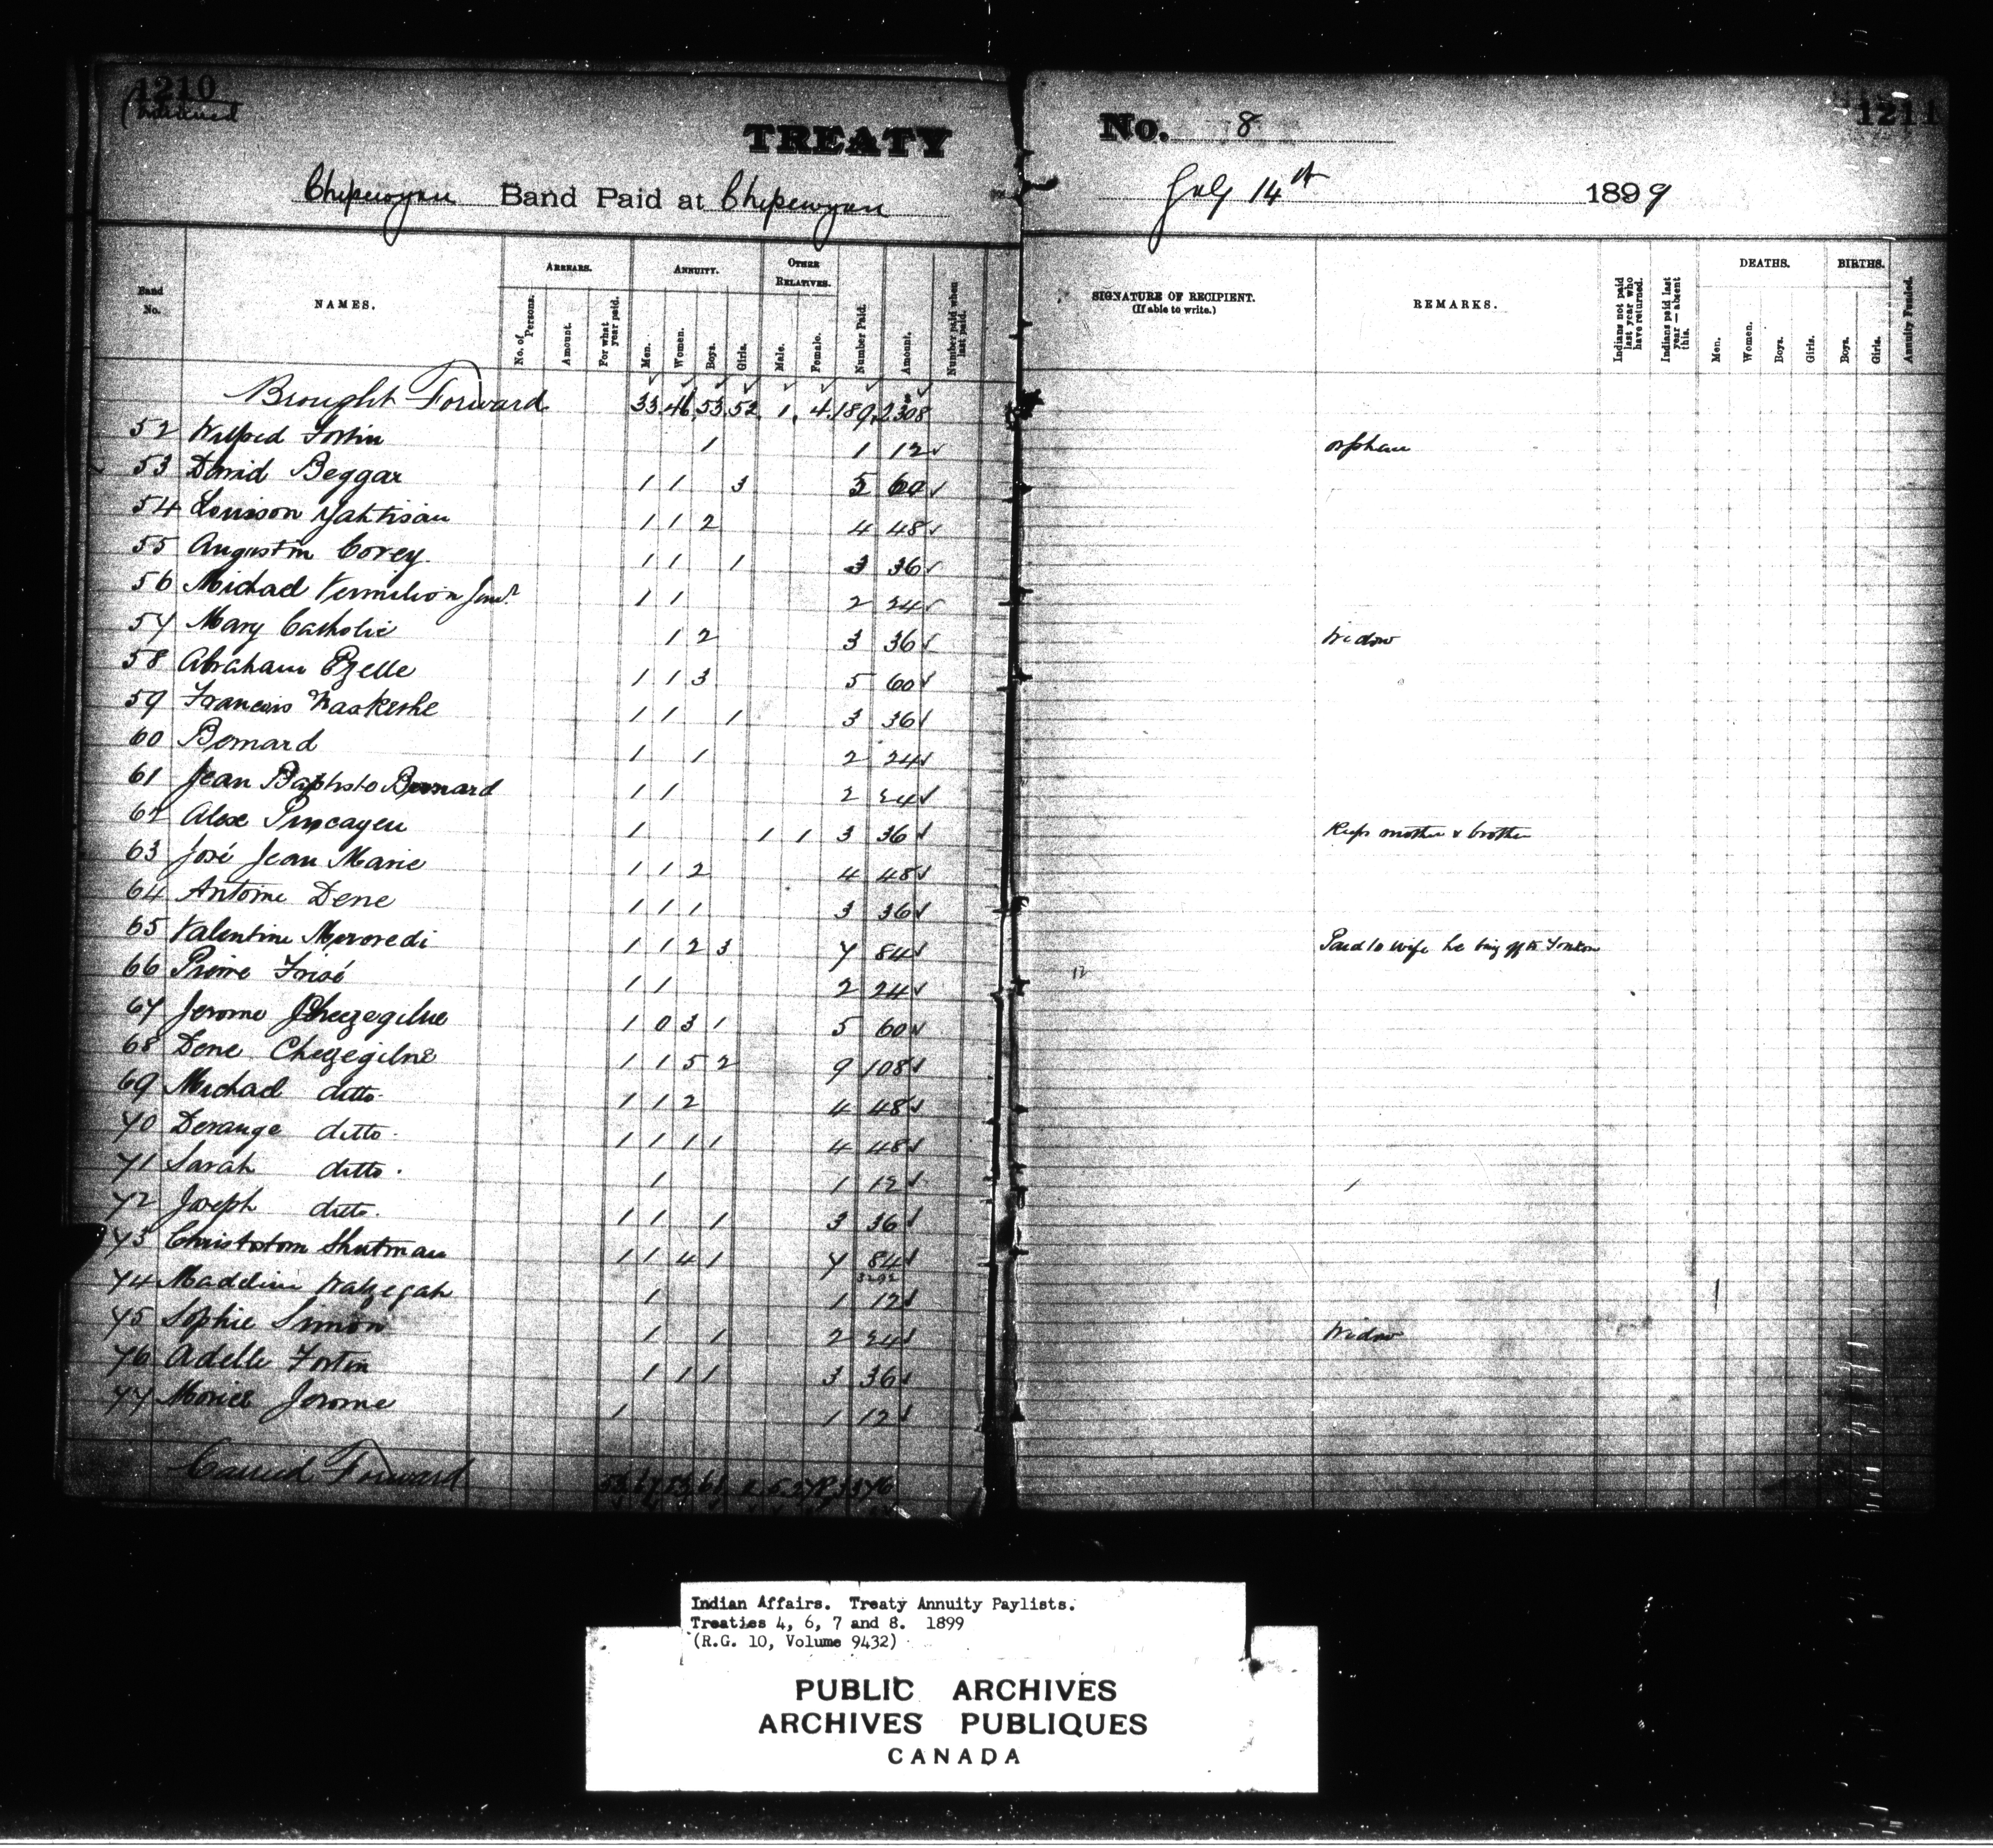 1210
TREATY No. 8
1211
Chipewyan Band Paid at Chipewyan July 14th 1899
Band No. NAMES. ARREARS. No. of Persons. Amount. For what year paid. ANNUITY. Men. Women. Boys. Girls. OTHER RELATIVES. Male. Female. Number Paid. Amount. Number paid when last paid. SIGNATURE OF RECIPIENT. (If able to write.) REMARKS. Indians not paid last year who have returned. Indians paid last year—absent this. DEATHS. Men. Women. Boys. Girls. BIRTHS. Boys. Girls. Annuity Funded.
Brought Forward 33 46 53 52 1 4 189 2308
52 Wilfred Fortin 1 1 12 orphan
53 David Beggar 1 1 3 5 60
54 Louison Yahtisau 1 1 2 4 48
55 Augustin Corey 1 1 1 3 36
56 Michael Vermilion Junr 1 1 2 24
57 Mary Catholic 1 2 3 36 Widow
58 Abraham Ezelle 1 1 3 5 60
59 Francois 1 1 1 3 36
60 Bernard 1 1 2 24
61 Jean Baptiste Bernard 1 1 2 24
62 Alex 1 1 1 3 36 Keeps mother & brother
63 José Jean Marie 1 1 2 4 48
64 Antoine Dene 1 1 1 3 36
65 Valentine 1 1 2 3 7 84 Paid to wife he being off to
66 Pierre Frisé 1 1 2 24
67 Jerome Cheezegilne 1 0 3 1 5 60
68 Dene Chezegilne 1 1 5 2 9 108
69 Michael ditto 1 1 2 4 48
70 Deranye ditto 1 1 1 1 4 48
71 Sarah ditto 1 1 12
72 Joseph ditto 1 1 1 3 36
73 Christostom Shutman 1 1 4 1 7 84
3292
74 Madeline 1 1 12
75 Sophie Simon 1 1 2 24 Widow
76 Adelle Fortin 1 1 1 3 36
77 Jerome 1 1 12
Carried Forward
Indian Affairs. Treaty Annuity Paylists.
Treaties 4, 6, 7 and 8. 1899
(R.G. 10, Volume 9432)
PUBLIC ARCHIVES
ARCHIVES PUBLIQUES
CANADA